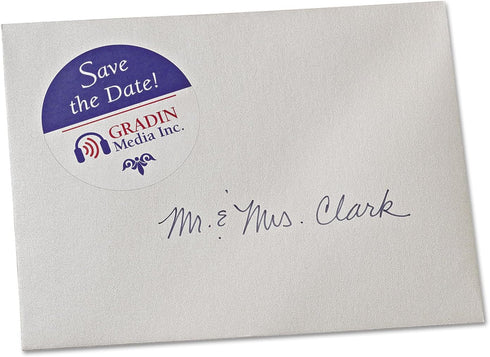 Save
the Date!
GRADIN
Media Inc.
Mr. & Mrs. Clark